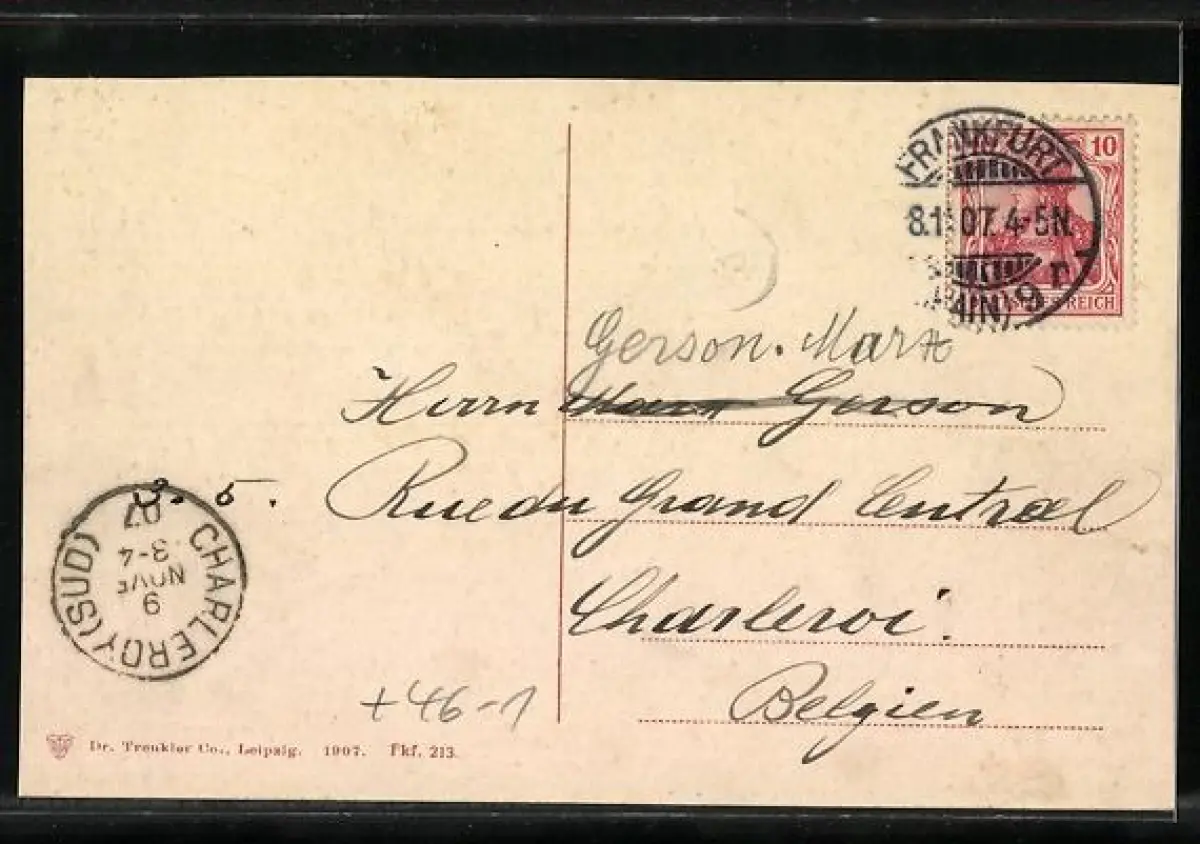 FRANKFURT
8.11.07. 4-5N.
(MAIN) 9 r
10
REICH
Gerson. Marx
Herrn Marx Gerson
Rue du Grand Central
Charleroi.
Belgien
3. 5.
CHARLEROY (SUD)
9
NOVE
3-4
07
+ 46-1
Dr. Trenkler Co., Leipzig. 1907. Fkf. 213.